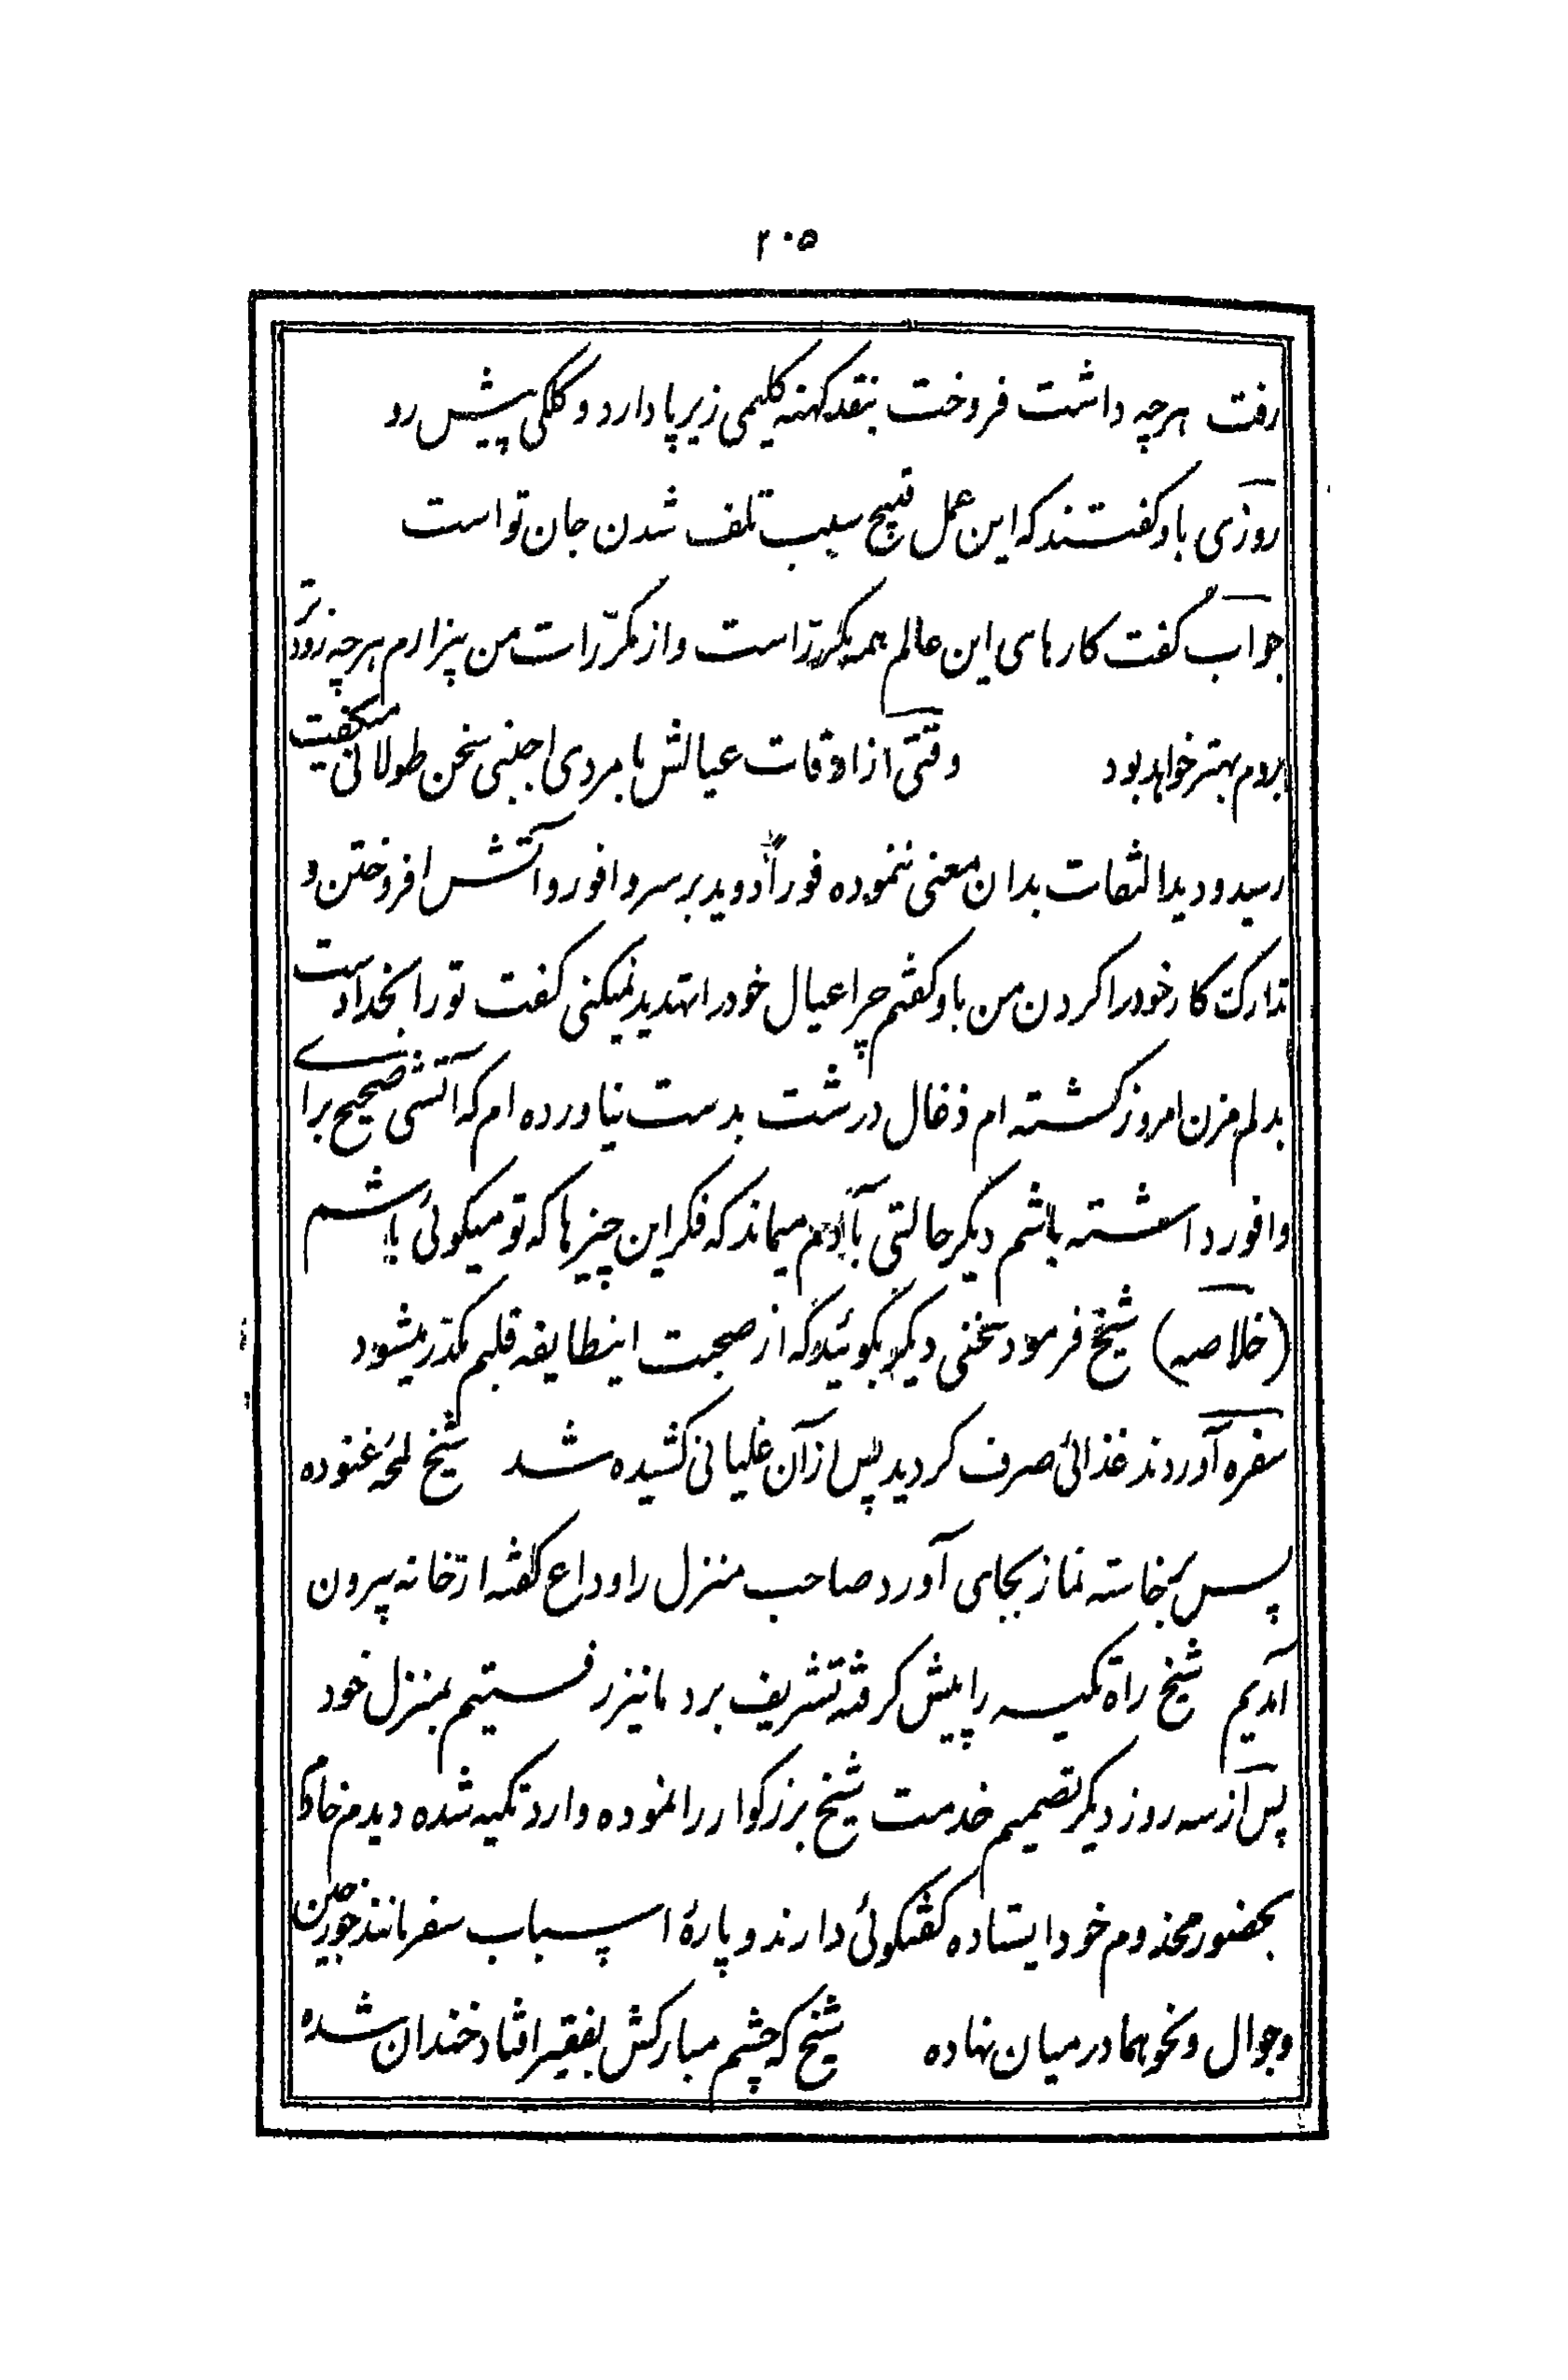 ۲۰۵
رفت هرچه داشت فروخت بنقد کهنه گلیمی زیر پا دارد و کلکی پیش رو
روزی باو گفتند که این عمل قبیح سبب تلف شدن جان تو است
جواب گفت کارهای این عالم همه مکرر است و از مکررات من بیزارم هرچه زودتر
بروم بهتر خواهد بود وقتی از اوقات عیالش با مردی اجنبی سخن طولانی میگفت
رسید و دید التفات بدان معنی ننموده فوراً دوید بر سر وافور و آتش افروختن و
تدارک کار خود را کردن من باو گفتم چرا عیال خود را تهدید نمیکنی گفت تو را بخدا دست
بدلم مزن امروز گشته ام ذغال درشت بدست نیاورده ام که آتشی صحیح برای
وافور داشته باشم دیگر حالتی با آدم میماند که فکر این چیزها که تو میگوئی باشم
(خلاصه) شیخ فرمود سخنی دیگر بگوئید که از صحبت اینطایفه قلبم مکدر میشود
سفره آوردند غذائی صرف گردید پس از آن غلیانی کشیده شد شیخ لمحهٔ غنوده
پس برخاسته نماز بجای آورد صاحب منزل را وداع گفته از خانه بیرون
آمدیم شیخ راه تکیه را پیش گرفته تشریف برد ما نیز رفتیم بمنزل خود
پس از سه روز دیگر تصمیم خدمت شیخ بزرگوار را نموده وارد تکیه شده دیدم خادم
بحضور مخدوم خود ایستاده گفتگوئی دارند و پارهٔ اسباب سفر مانند خورجین
و جوال و نحوهما در میان نهاده شیخ که چشم مبارکش بفقیر افتاد خندان شده